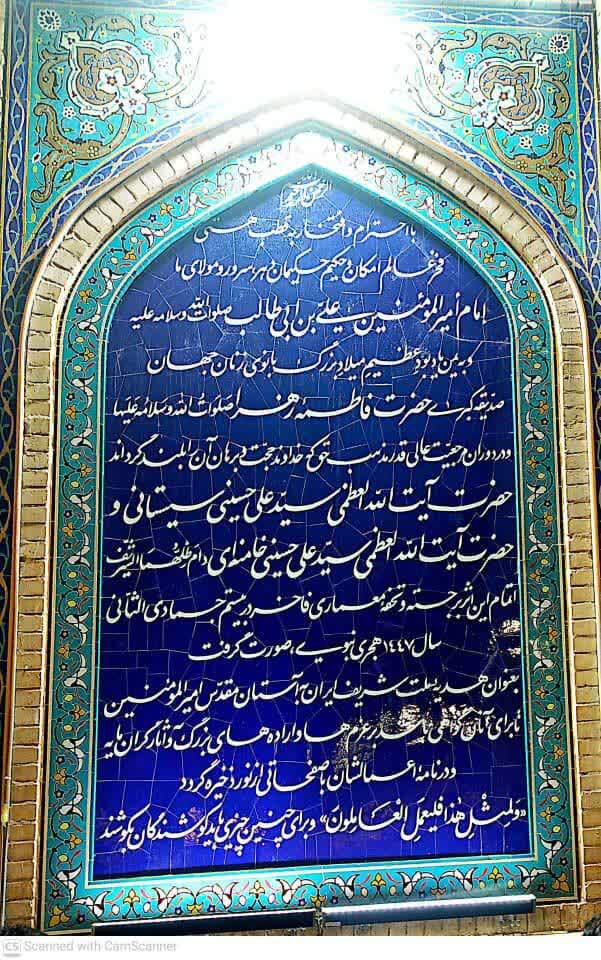 با احترام و افتخار به قطب هستی
فخر عالم امکان و حکیم حکیمان دهر، سرور و مولای ما
امام أمیرالمؤمنین علی بن ابی طالب صلوات الله وسلامه علیه
و به یمن یادبود عظیم میلاد بزرگ بانوی زنان جهان
صدیقه کبری حضرت فاطمه زهرا صلوات الله وسلامه علیها
و در دوران مرجعیت عالی قدر مذهب حق که خداوند حجت و برهان آن را بلند گرداند
حضرت آیت الله العظمی سید علی حسینی سیستانی و
حضرت آیت الله العظمی سید علی حسینی خامنه‌ای دام ظلهما الشریف
اتمام این اثر برجسته و تحفه معماری فاخر در بیستم جمادی الثانی
سال ۱۴۴۷ هجری نبوی، صورت گرفت
بعنوان هدیه ملت شریف ایران به آستان مقدس امیرالمؤمنین
تا برای آنان گواهی باشد بر عزم‌ها و اراده‌های بزرگ و آثار گران‌مایه
و در نامه اعمالشان با صفحاتی از نور ذخیره گردد
«ولمثل هذا فلیعمل العاملون» و برای چنین چیزی باید کوشندگان بکوشند
CS Scanned with CamScanner